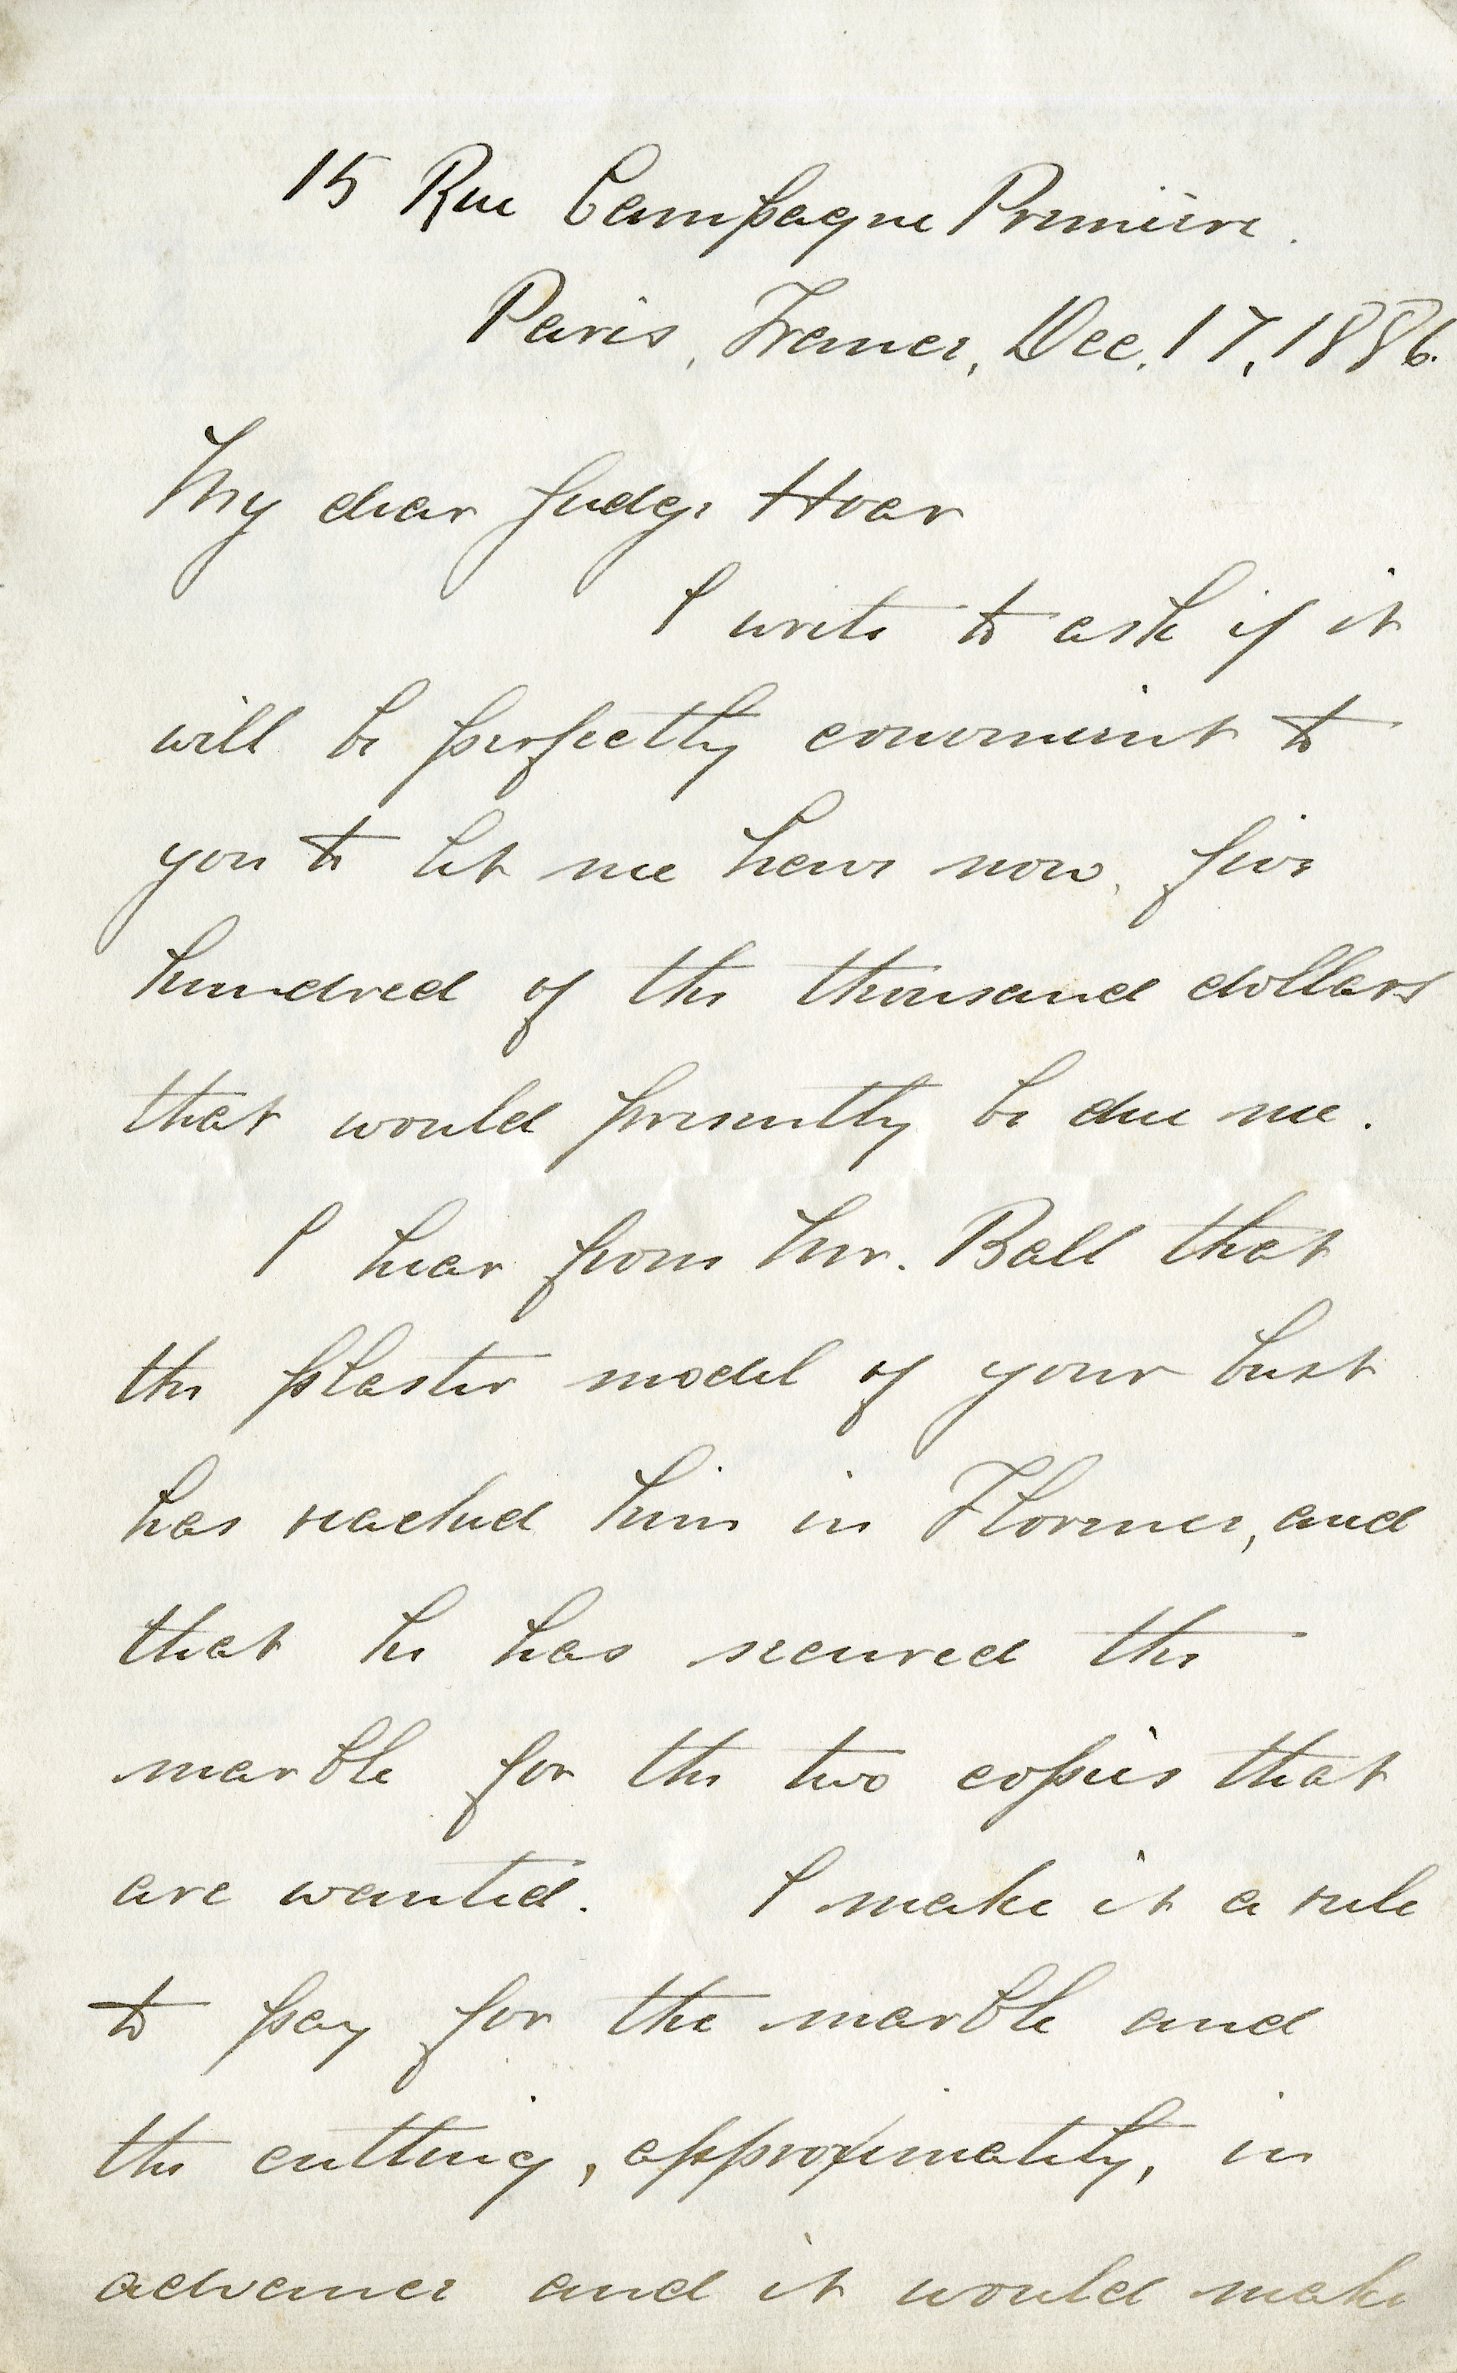 15 Rue Campagne Première.
Paris, France, Dec. 17, 1886.
My dear Judge Hoar
I write to ask if it
will be perfectly convenient to
you to let me have now, five
hundred of the thousand dollars
that would presently be due me.
I hear from Mr. Ball that
the plaster model of your bust
has reached him in Florence, and
that he has secured the
marble for the two copies that
are wanted. I make it a rule
to pay for the marble and
the cutting, approximately, in
advance and it would make